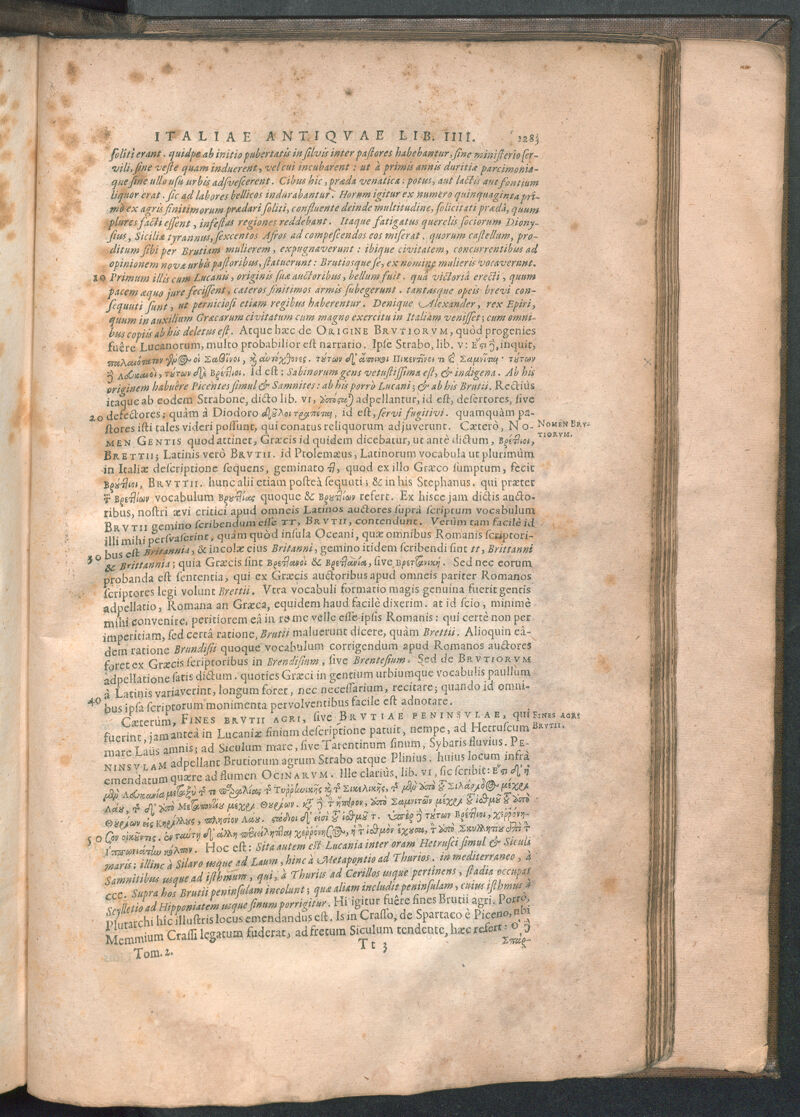 ITALIAE ANTIQVAE LIB. IIII. 1283
soliti erant. quidpe ab initio pubertatis in silvis inter pastores habebantur, sine ministerio ser-
vili, sine veste quam induerent, vel cui incubarent: ut à primis annis duritiæ parcimoniæ-
que sine ullo usu urbis adsvescerent. Cibus hic, præda venatica: potus, aut lactis aut fontium
liquor erat. sic ad labores bellicos indurabantur. Horum igitur ex numero quinquaginta pri-
mò ex agris finitimorum prædari soliti, confluente deinde multitudine, solicitati prædâ, quum
plures facti essent, infestas regiones reddebant. Itaque fatigatus querelis sociorum Diony-
sius, Siciliæ tyrannus, sexcentos Afros ad compescendos eos miserat. quorum castellum, pro-
ditum sibi per Brutiam mulierem, expugnaverunt: ibique civitatem, concurrentibus ad
opinionem novæ urbis pastoribus, statuerunt: Brutiosque se, ex nomine mulieris vocaverunt.
10 Primum illis cum Lucanis, originis suæ auctoribus, bellum fuit. quâ victoriâ erecti, quum
pacem æquo jure fecissent, cæteros finitimos armis subegerunt. tantasque opeis brevi con-
sequuti sunt, ut perniciosi etiam regibus haberentur. Denique Alexander, rex Epiri,
quum in auxilium Græcarum civitatum cum magno exercitu in Italiam venisset; cum omni-
bus copiis ab his deletus est. Atque hæc de ORIGINE BRVTIORVM, quòd progenies
fuêre Lucanorum, multo probabilior est narratio. Ipse Strabo, lib. v: inquit,
οἱ Σαβῖνοι,
Id est: Sabinorum gens vetustissima est, & indigena. Ab his
originem habuêre Picentes simul & Samnites: ab his porrò Lucani; & ab his Brutii. Rectiùs
itaque ab eodem Strabone, dicto lib. vi, adpellantur, id est, desertores, sive
20 defectores; quàm à Diodoro id est, servi fugitivi. quamquàm pa-
stores isti tales videri possunt, qui conatus reliquorum adjuverunt. Cæterò, NO- NOMEN BRV-
MEN GENTIS quod attinet, Græcis id quidem dicebatur, ut antè dictum, Βρέττιοι, TIORVM.
BRETTII; Latinis verò BRVTII. id Ptolemæus, Latinorum vocabula ut plurimùm
in Italiæ descriptione sequens, geminato quod ex illo Græco sumptum, fecit
BRVTTII. hunc alii etiam posteà sequuti; & in his Stephanus. qui præter
vocabulum quoque & refert. Ex hisce jam dictis aucto-
ribus, nostri ævi critici apud omneis Latinos auctores suprà scriptum vocabulum
BRVTII gemino scribendum esse TT, BRVTTII, contendunt. Verùm tam facilè id
illi mihi persvaserint, quàm quòd insula Oceani, quæ omnibus Romanis scriptori-
30 bus est Britannia, & incolæ eius Britanni, gemino itidem scribendi sint tt, Brittanni
& Brittannia; quia Græcis sint & sive Sed nec eorum
probanda est sententia, qui ex Græcis auctoribus apud omneis pariter Romanos
scriptores legi volunt Brettii. Vtra vocabuli formatio magis genuina fuerit gentis
adpellatio, Romana an Græca, equidem haud facilè dixerim. at id scio, minimè
mihi convenire, peritiorem eâ in re me velle esse ipsis Romanis: qui certè non per
imperitiam, sed certâ ratione, Brutii maluerunt dicere, quàm Brettii. Alioquin eâ-
dem ratione Brundisii quoque vocabulum corrigendum apud Romanos auctores
foret ex Græcis scriptoribus in Brendisium, sive Brentesium. Sed de BRVTIORVM
adpellatione satis dictum. quoties Græci in gentium urbiumque vocabulis paullum
40 à Latinis variaverint, longum foret, nec necessarium, recitare; quando id omni-
bus ipsa scriptorum monimenta pervolventibus facile est adnotare.
Cæterùm, FINES BRVTII AGRI, sive BRVTIAE PENINSVLAE, qui FINES AGRI
fuerint, jam anteà in Lucaniæ finium descriptione patuit, nempe, ad Hetruscum BRVTII.
mare Laüs amnis; ad Siculum mare, sive Tarentinum sinum, Sybaris fluvius. PE-
NINSVLAM adpellant Brutiorum agrum Strabo atque Plinius. huius locum infrà
emendatum quære ad flumen OCINARVM. Ille clariùs, lib. vi, sic scribit:
50
Hoc est: Sita autem est Lucania inter oram Hetrusci simul & Siculi
maris; illinc à Silaro usque ad Laum, hinc à Metapontio ad Thurios. in mediterraneo, à
Samnitibus usque ad isthmum, qui, à Thuriis ad Cerillos usque pertinens, stadia occupat
ccc. Supra hos Brutii peninsulam incolunt; quæ aliam includit peninsulam, cuius isthmus à
Scylletio ad Hipponiatem usque sinum porrigitur. Hi igitur fuêre fines Brutii agri. Porrò,
Plutarchi hîc illustris locus emendandus est. Is in Crasso, de Spartaco è Piceno, ubi
Memmium Crassi legatum fuderat, ad fretum Siculum tendente, hæc refert:
Tom. 2. Tt 3 Σπάρ-